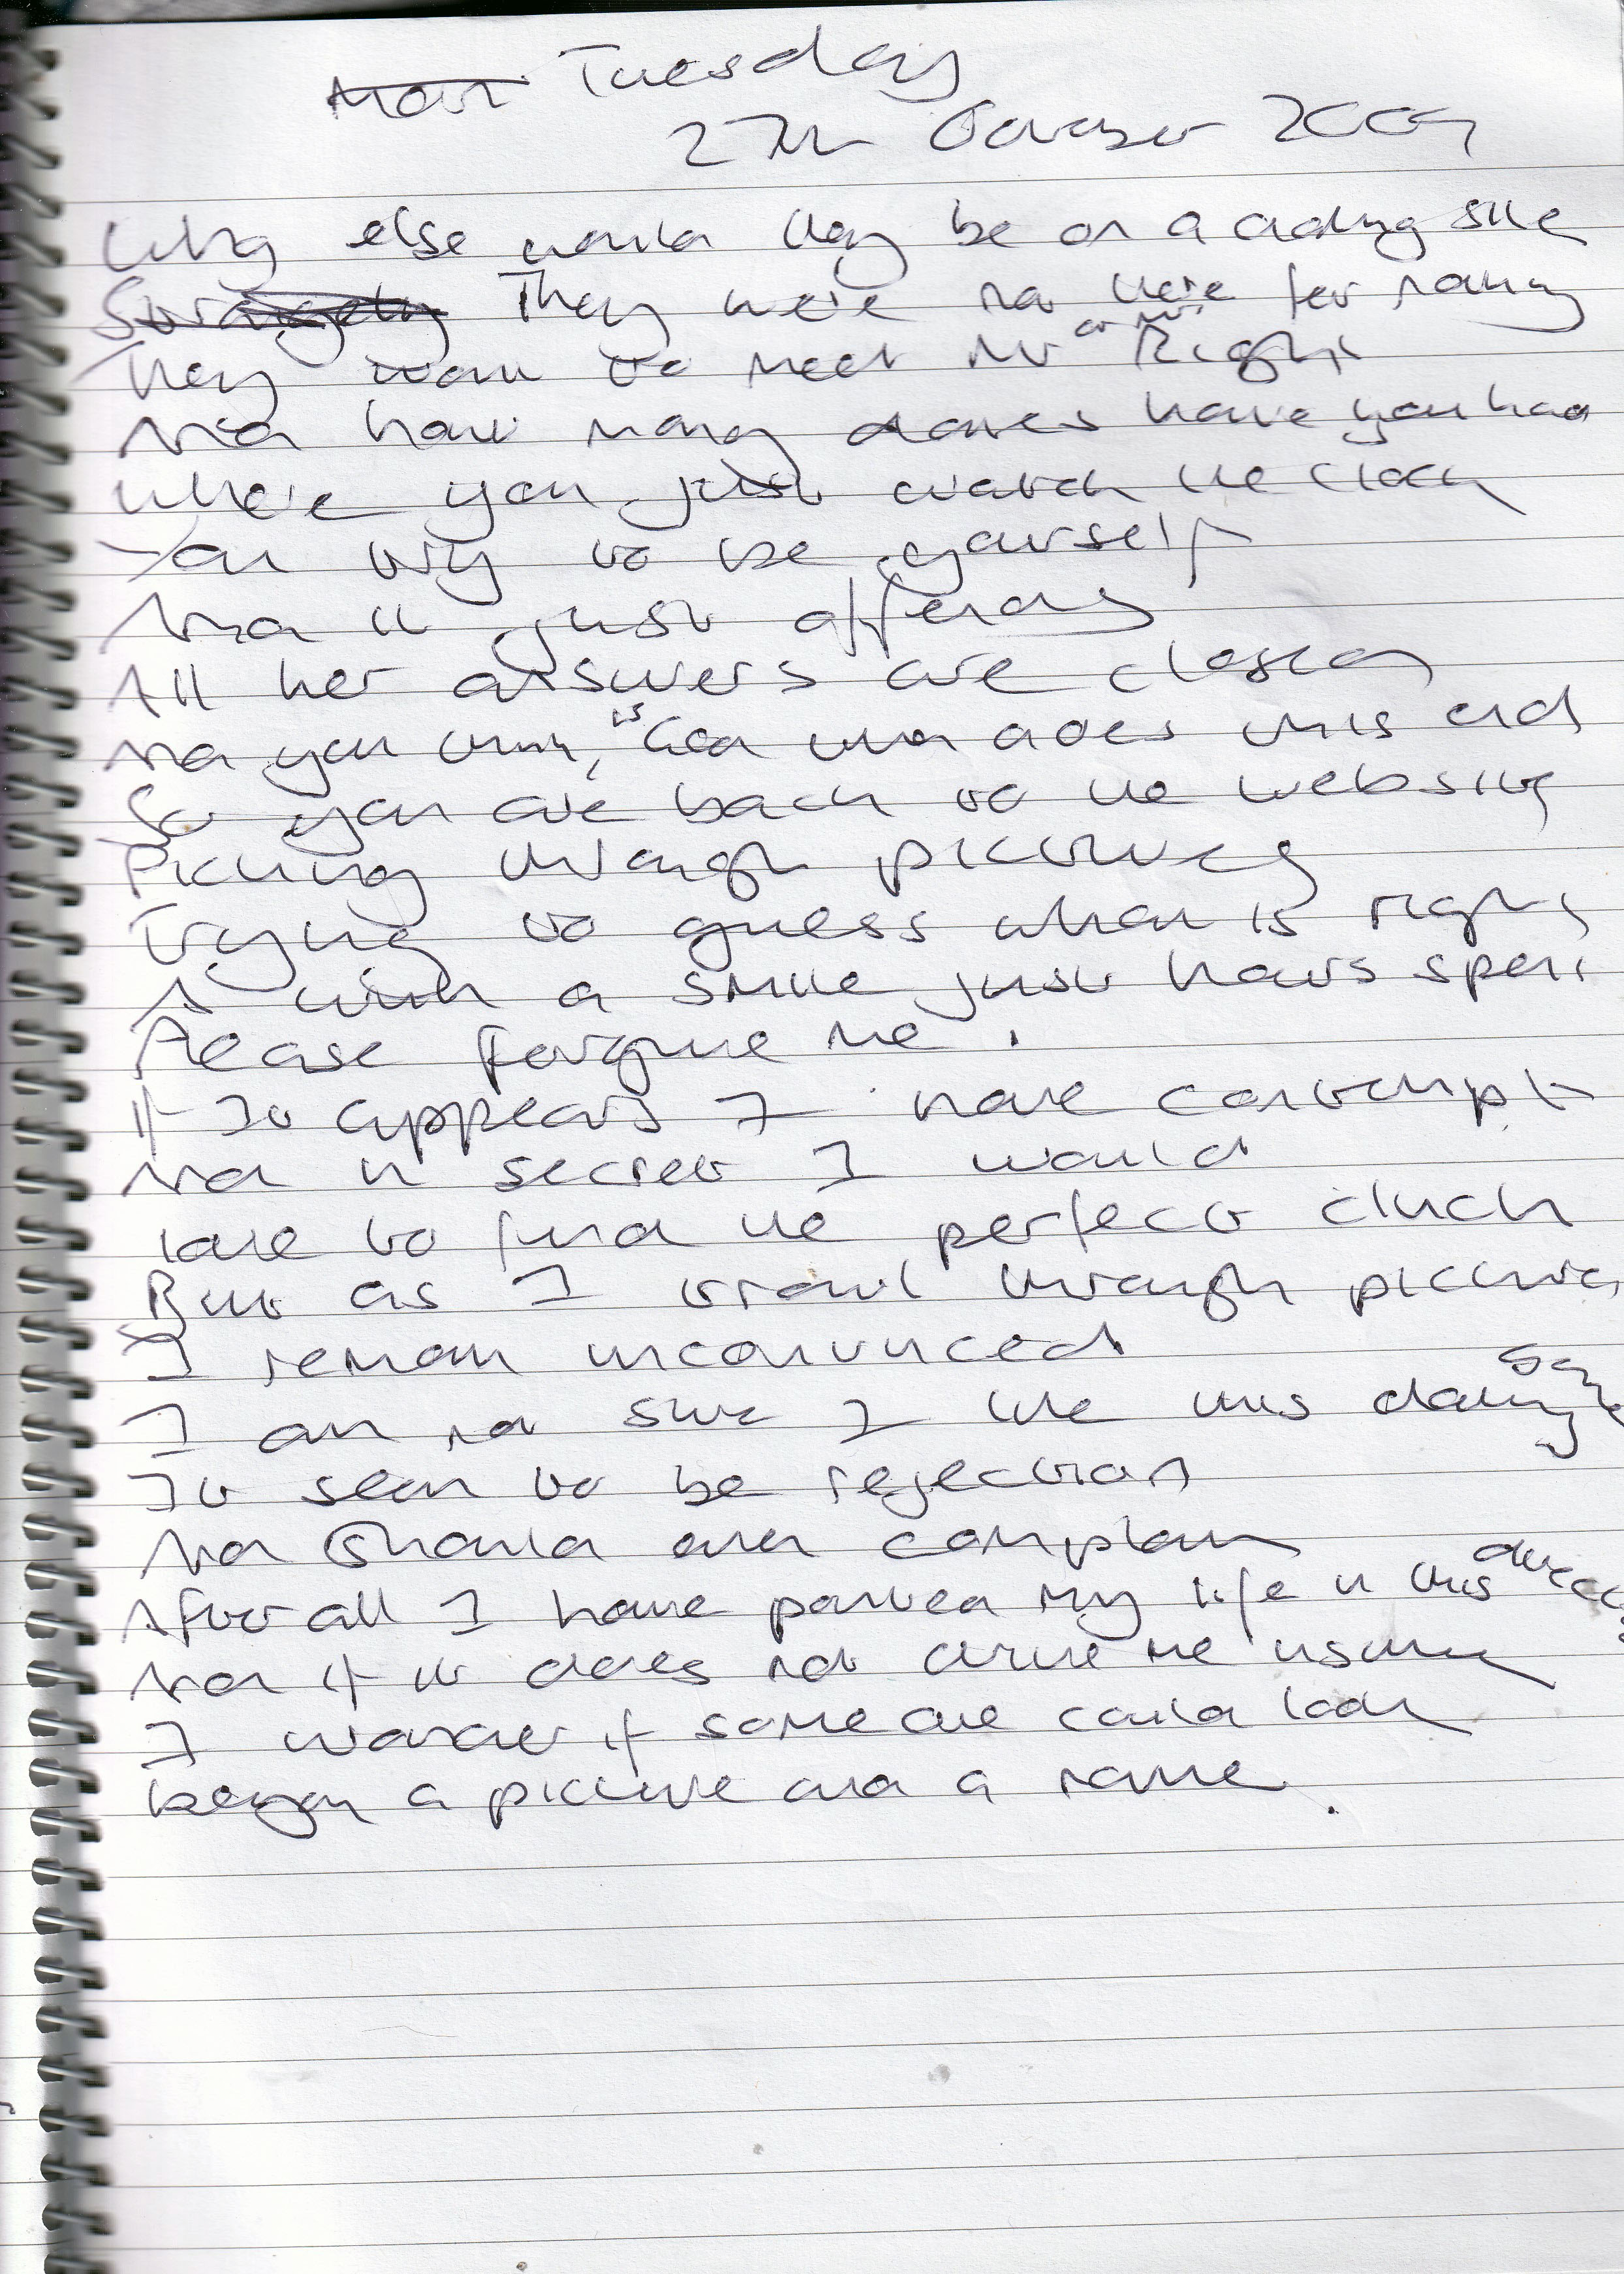 Mon Tuesday
27th October 2009
Why else would they be on a dating site
Strangely They were not there for nothing
They want to meet Mr or Mrs Right
And how many dates have you had
where you just watch the clock
You try to be yourself
And it just offends
All her answers are closed
And you think, "God when does this end
So you are back to the website
Picking through pictures
Trying to guess what is right
A wink a smile just hours spent
Please forgive me.
If It appears I have contempt
And in secret I would
love to find the perfect clinch
But as I trawl through pictures
I remain unconvinced
I am not sure I like this dating game
It seem to be rejection
And should even complain
After all I have painted my life in this direction
And if it does not drive me insane
I wonder if someone could look
beyond a picture and a name.